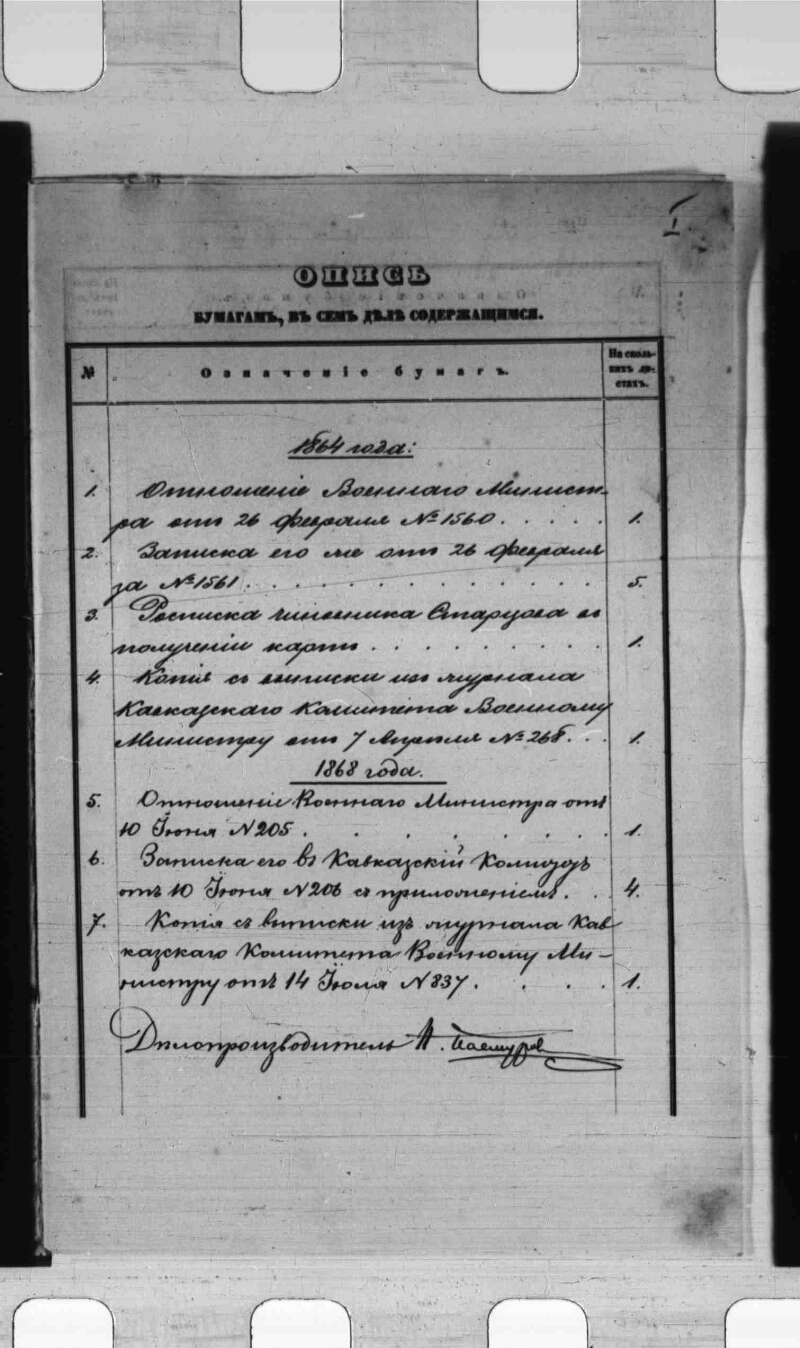 1
ОПИСЬ
БУМАГАМЪ, ВЪ СЕМЪ ДѢЛѢ СОДЕРЖАЩИМСЯ.
№ Означеніе бумагъ. На сколь-
кихъ ли-
стахъ.
1864 года:
1. Отношеніе Военнаго Минист-
ра отъ 26 февраля № 1560 . . . . . 1.
2. Записка его же отъ 26 февраля
за № 1561 . . . . . . . . . . . . . . 5.
3. Росписка чиновника Старцова въ
полученіи картъ . . . . . . . . . 1.
4. Копія съ выписки изъ журнала
Кавказскаго Комитета Военному
Министру отъ 7 Апрѣля № 268. . . 1.
1868 года.
5. Отношеніе Военнаго Министра отъ
10 Іюня N 205 . . . . . . . 1.
6. Записка его въ Кавказскій
отъ 10 Іюня N 206 съ приложеніемъ. . . 4.
7. Копія съ выписки изъ журнала Кав
казскаго Комитета Военному Ми-
нистру отъ 14 Іюля N 837. . . . . 1.
Дѣлопроизводитель